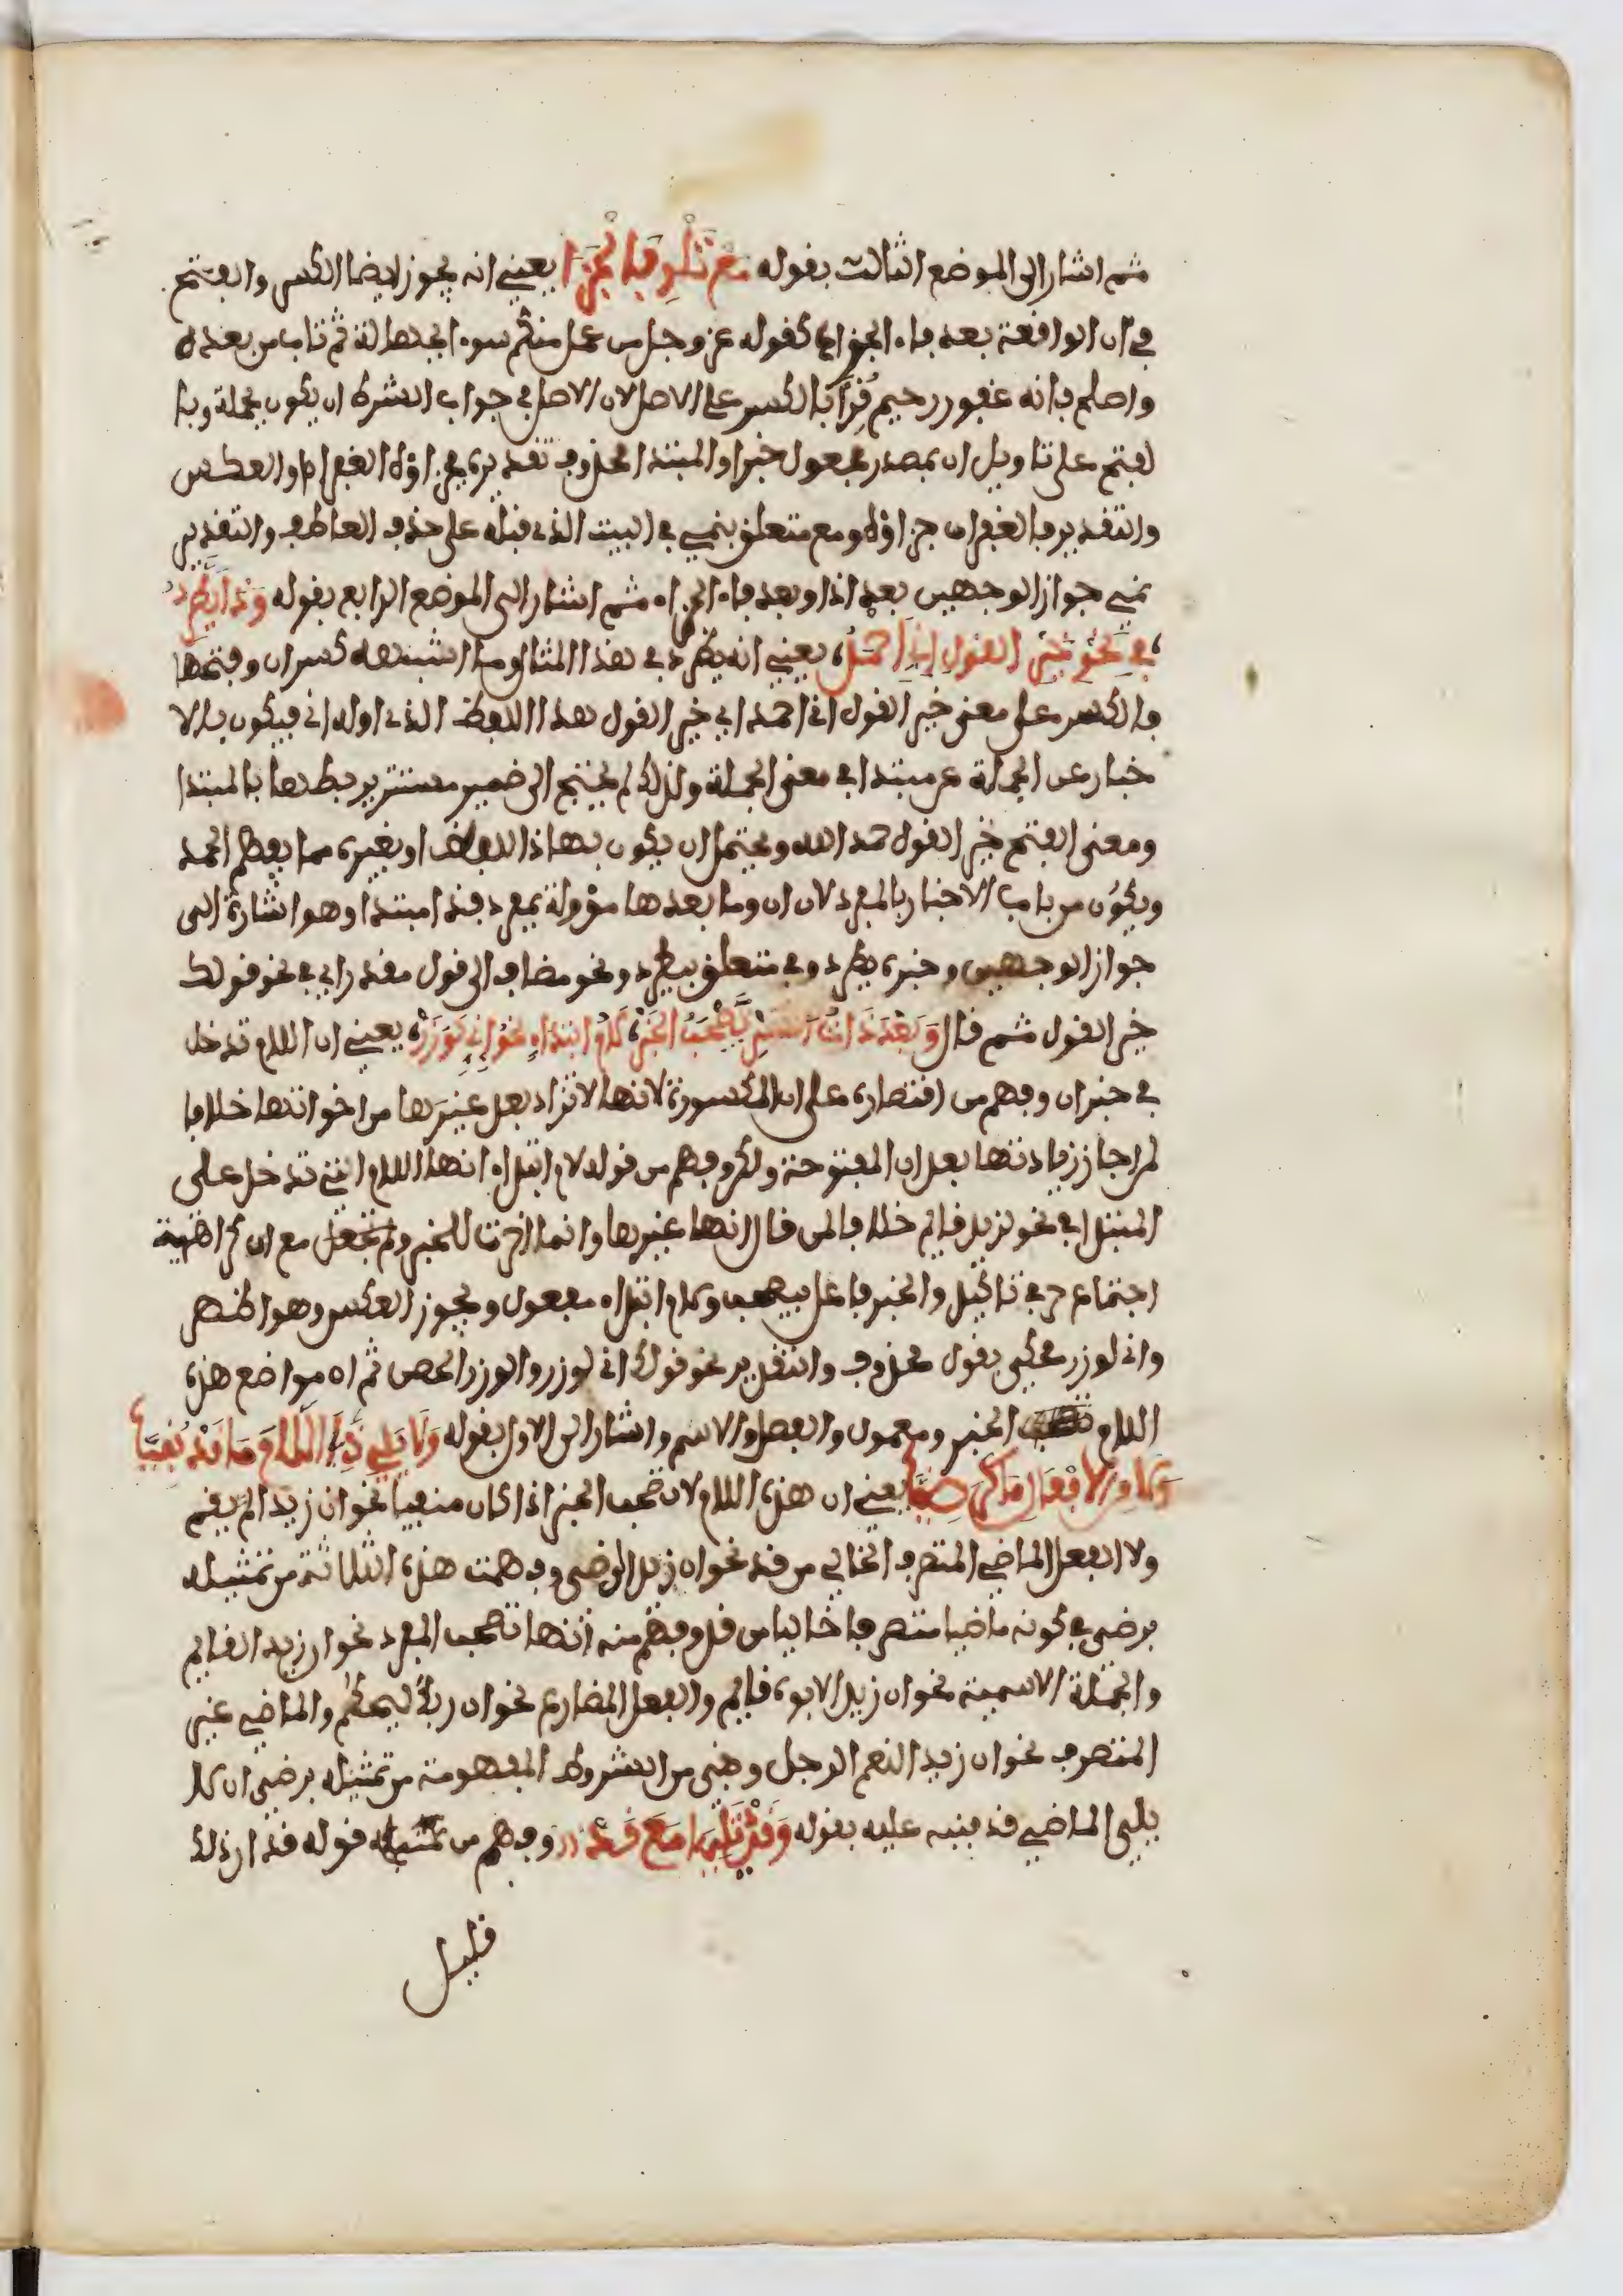 ثم اشار الى الموضع الثالث بقوله مع تلو فا الجزا يعني انه يجوز ايضا الكسر والفتح
في ان الواقعة بعد فاء الجزاء كقوله عز وجل من عمل منكم سوءا بجهالة ثم تاب من بعده
واصلح فانه غفور رحيم قرئ بالكسر على الاصل لان الاصل في جواب الشرط ان يكون جملة وبا
لفتح على تاويل ان بمصدر مجعول خبرا والمبتدا محذوف تقديره فجزاؤه الغفران او العكس
والتقدير فالغفران جزاؤه ومع متعلق بنمي في البيت الذي قبله على حذف العاطف والتقدير
نمي جواز الوجهين بعد اذا وبعد فاء الجزاء ثم اشار الى الموضع الرابع بقوله وذا يطرد
في نحو خير القول اني احمد يعني انه يطرد في هذا المثال وما اشبهه كسر ان وفتحها
فالكسر على معنى خير القول اني احمد اي خير القول هذا اللفظ الذي اوله اني فيكون بالا
خبار عن الجملة عن مبتدا في معنى الجملة ولذلك لم يحتج الى ضمير مستتر يربطها بالمبتدا
ومعنى الفتح خير القول حمد الله ويحتمل ان يكون بهاذا اللفظ او بغيره مما يعظم الحمد
ويكون من باب الاخبار بالمفرد لان ان وما بعدها مؤولة بمفرد فذا مبتدا وهو اشارة الى
جواز الوجهين وخبره يطرد وفي متعلق بيطرد ونحو مضاف الى قول مقدر اي في نحو قولك
خير القول ثم قال وبعد ذات الكسر تصحب الخبر لام ابتداء نحو اني لوزر يعني ان اللام تدخل
في خبر ان وفهم من اقتصاره على ان المكسورة لانها لا تزاد بعد غيرها من اخواتها خلافا
لمن اجاز زيادتها بعد ان المفتوحة ولكن وفهم من قوله لام ابتداء انها اللام التي تدخل على
المبتدا في نحو لزيد قايم خلافا لمن قال انها غيرها وانما اخرت للخبر ولم تجعل مع ان كراهية
اجتماع حرفي تاكيد والخبر فاعل بيصحب ولام ابتداء مفعول ويجوز العكس وهو اظهر
واني لوزر محكي بقول محذوف والتقدير نحو قولك اني لوزر والوزر الحصن ثم ان مواضع هذه
اللام الخبر ومعمول والفصل والاسم واشار الى الاول بقوله ولا يلي ذي اللام ما قد نفيا
ولا من الافعال ما كرضيا يعني ان هذه اللام لا تصحب الخبر اذا كان منفيا نحو ان زيدا لم يقم
ولا الفعل الماضي المتصرف الخالي من قد نحو ان زيدا لرضي وفهمت هذه الثلاثة من تمثيله
برضي في كونه ماضيا متصرفا خاليا من قد وفهم منه انها تصحب المفرد نحو ان زيدا لقايم
والجملة الاسمية نحو ان زيدا لابوه قايم والفعل المضارع نحو ان ربك ليحكم والماضي غير
المتصرف نحو ان زيدا لنعم الرجل وهي من الشروط المفهومة من تمثيله برضي ان كان
يلي الماضي قد فنبه عليه بقوله وقد يليها مع قد وفهم من قوله قد ان ذلك
قليل